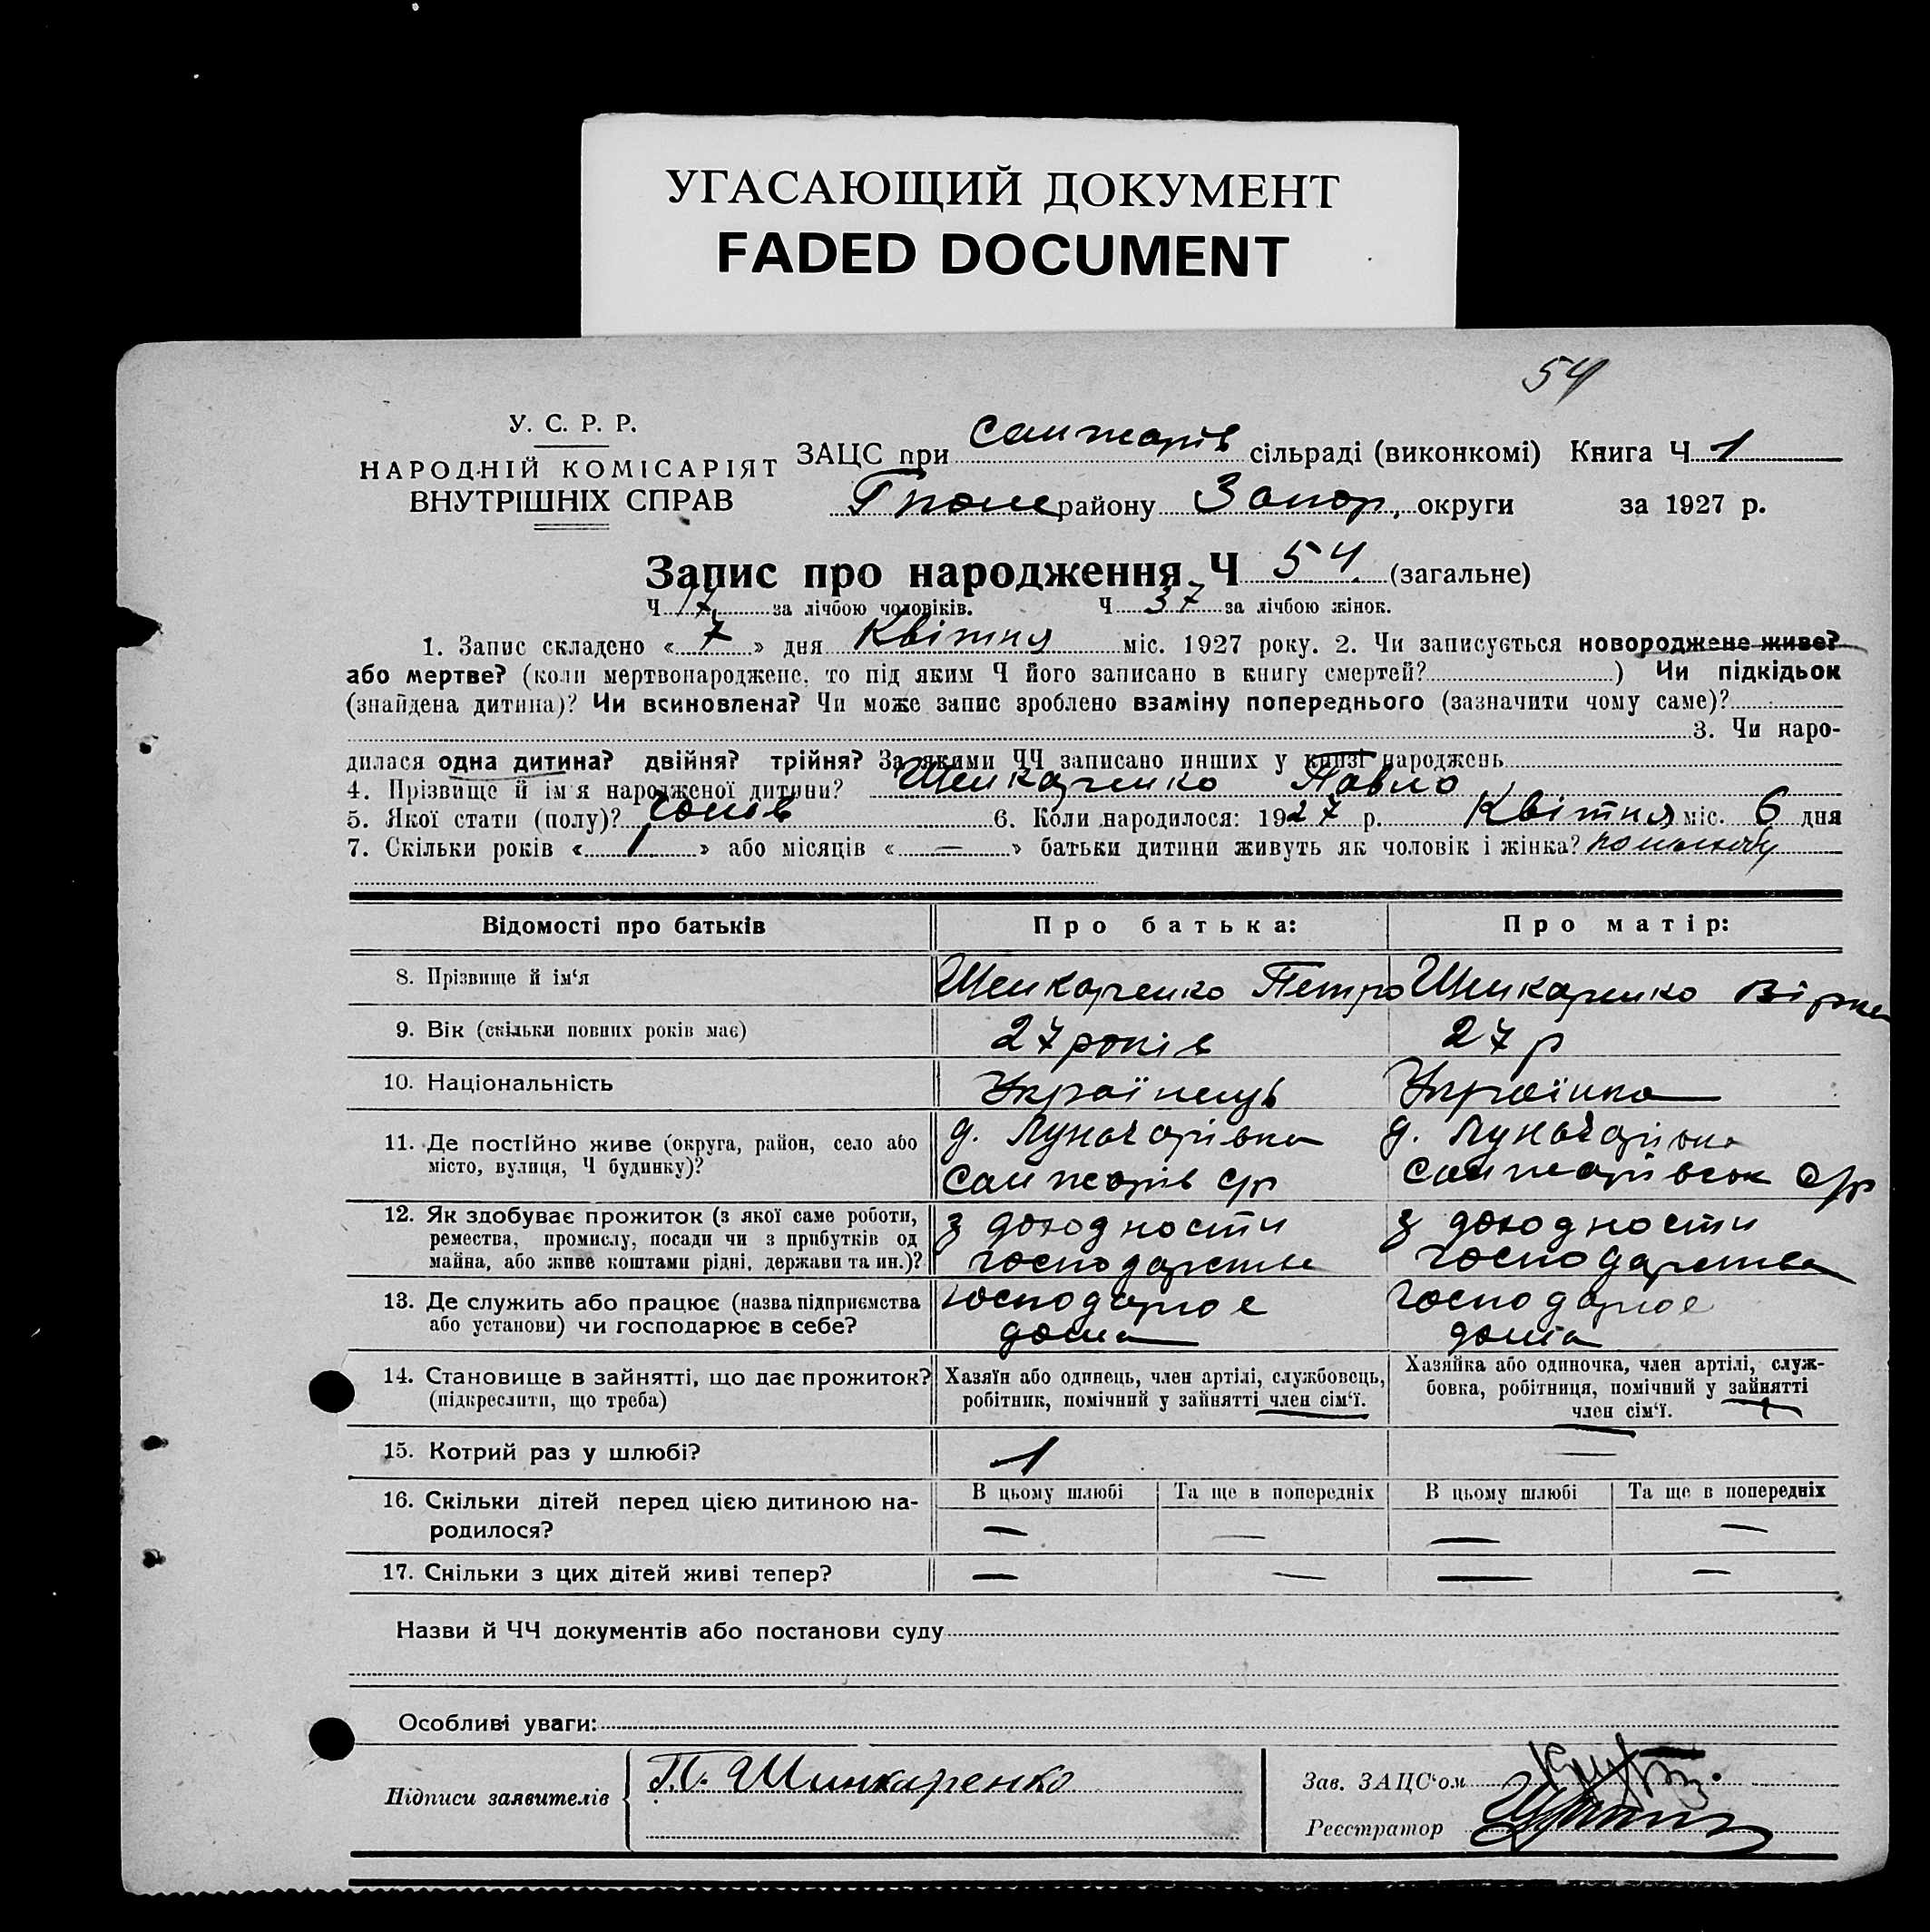 УГАСАЮЩИЙ ДОКУМЕНТ
FADED DOCUMENT
54
У. С. Р. Р.
НАРОДНІЙ КОМІСАРІЯТ
ВНУТРІШНІХ СПРАВ
ЗАЦС при Санжарів сільраді (виконкомі) Книга Ч 1
Гполе району Запор, округи за 1927 р.
Запис про народження Ч 54 (загальне)
Ч 17 за лічбою чоловіків. Ч 37 за лічбою жінок.
1. Запис складено « 7 » дня Квітня міс. 1927 року. 2. Чи записується новороджене живе?
або мертве? (коли мертвонароджене, то під яким Ч його записано в книгу смертей? ) Чи підкідьок
(знайдена дитина)? Чи всиновлена? Чи може запис зроблено взаміну попереднього (зазначити чому саме)?
3. Чи наро-
дилася одна дитина? двійня? трійня? За якими ЧЧ записано инших у книзі народжень
4. Прізвище й ім'я народженої дитини? Шенкаренко Павло
5. Якої стати (полу)? 6. Коли народилося: 1927 р. Квітня міс. 6 дня
7. Скільки років « 1 » або місяців « — » батьки дитини живуть як чоловік і жінка?
Відомості про батьків
Про батька:
Про матір:
8. Прізвище й ім'я
Шенкаренко Петро
Шенкаренко Вірка
9. Вік (скільки повних років має)
27 років
27 р
10. Національність
Українець
Українка
11. Де постійно живе (округа, район, село або
місто, вулиця, Ч будинку)?
д. Луначарівка
Санжарів с/р
д. Луначарівка
Санжарівськ с/р
12. Як здобуває прожиток (з якої саме роботи,
ремества, промислу, посади чи з прибутків од
майна, або живе коштами рідні, держави та ин.)?
з доходности
господарства
з доходности
господарства
13. Де служить або працює (назва підприємства
або установи) чи господарює в себе?
господарює
дома
господарює
дома
14. Становище в зайнятті, що дає прожиток?
(підкреслити, що треба)
Хазяїн або одинець, член артілі, службовець,
робітник, помічний у зайнятті член сім'ї.
Хазяйка або одиночка, член артілі, служ-
бовка, робітниця, помічний у зайнятті
член сім'ї.
15. Котрий раз у шлюбі?
1
—
16. Скільки дітей перед цією дитиною на-
родилося?
В цьому шлюбі Та ще в попередніх В цьому шлюбі Та ще в попередніх
— — — —
17. Скільки з цих дітей живі тепер?
— — — —
Назви й ЧЧ документів або постанови суду
Особливі уваги:
Підписи заявителів
П. Шинкаренко
Зав. ЗАЦС'ом
Реєстратор